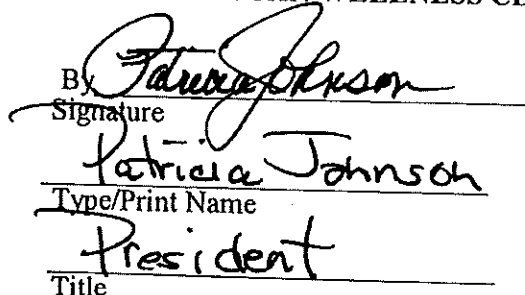 WELLNESS
By Patricia Johnson
Signature
Patricia Johnson
Type/Print Name
President
Title